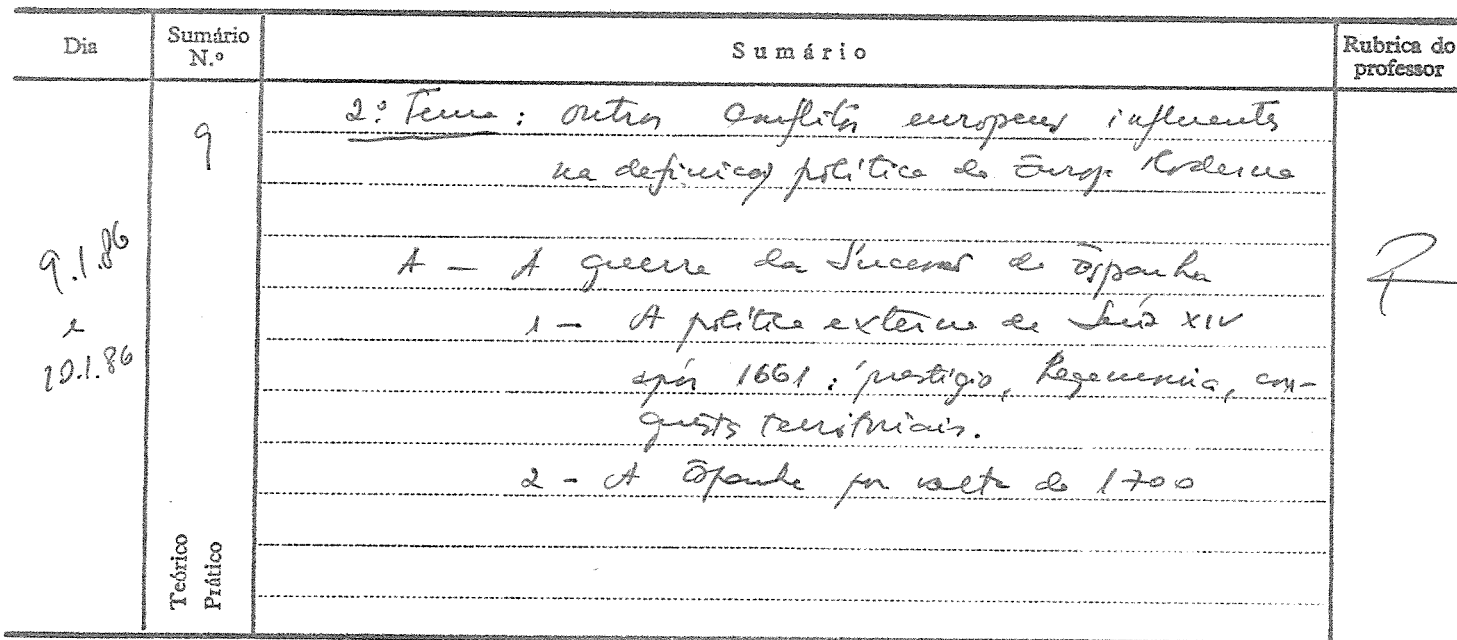 Dia
Sumário N.º
Sumário
Rubrica do professor
9.1.86
e
10.1.86
9
2.º Tema: outros conflitos europeus influentes
na definição política da Europa Moderna
A - A guerra da Sucessão de Espanha
1 - A política externa de Luís XIV
após 1661: prestígio, hegemonia, con-
quistas territoriais.
2 - A Espanha por volta de 1700
Teórico
Prático